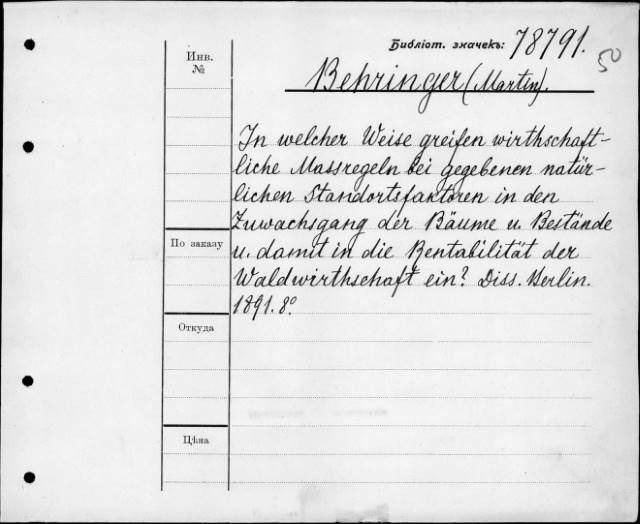 Библіот. значекъ: 78791.
50
Инв.
№
Behringer (Martin).
In welcher Weise greifen wirthschaft-
liche Massregeln bei gegebenen natür-
lichen Standortsfaktoren in den
Zuwachsgang der Bäume u. Bestände
u. damit in die Rentabilität der
Waldwirthschaft ein? Diss. Berlin.
1891. 8º.
По заказу
Откуда
Цѣна